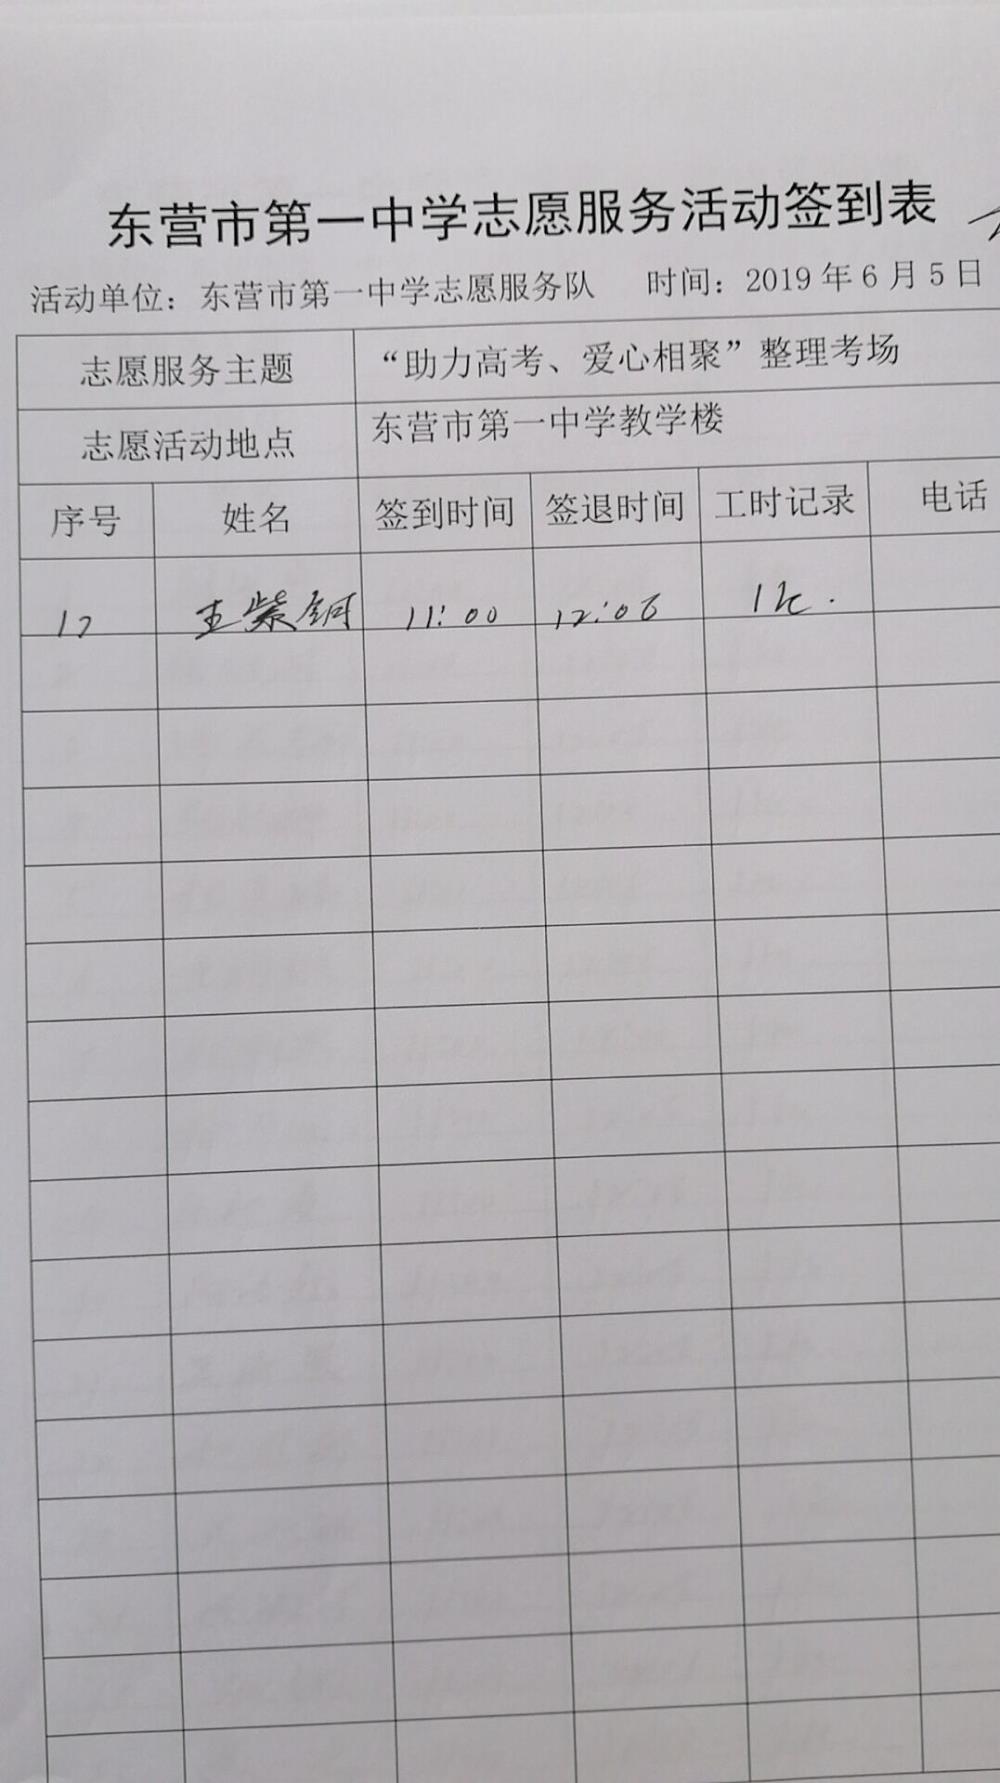 东营市第一中学志愿服务活动签到表
活动单位：东营市第一中学志愿服务队 时间：2019年6月5日
志愿服务主题 “助力高考、爱心相聚”整理考场
志愿活动地点 东营市第一中学教学楼
序号 姓名 签到时间 签退时间 工时记录 电话
王紫钶 11:00 12:06 1h.